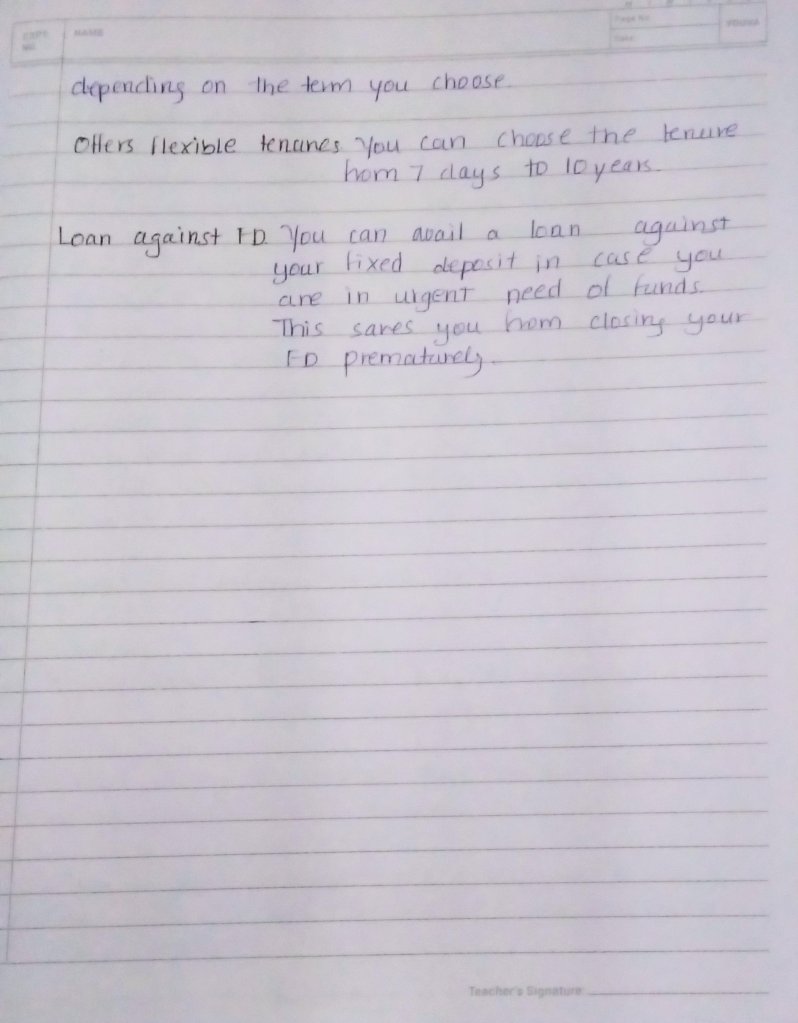 EXPT. NO.
NAME
Page No.
Date:
YOUVA
depending on the term you choose.
Offers flexible tenures You can choose the tenure
from 7 days to 10 years.
Loan against FD You can avail a loan against
your fixed deposit in case you
are in urgent need of funds.
This saves you from closing your
FD prematurely.
Teacher's Signature